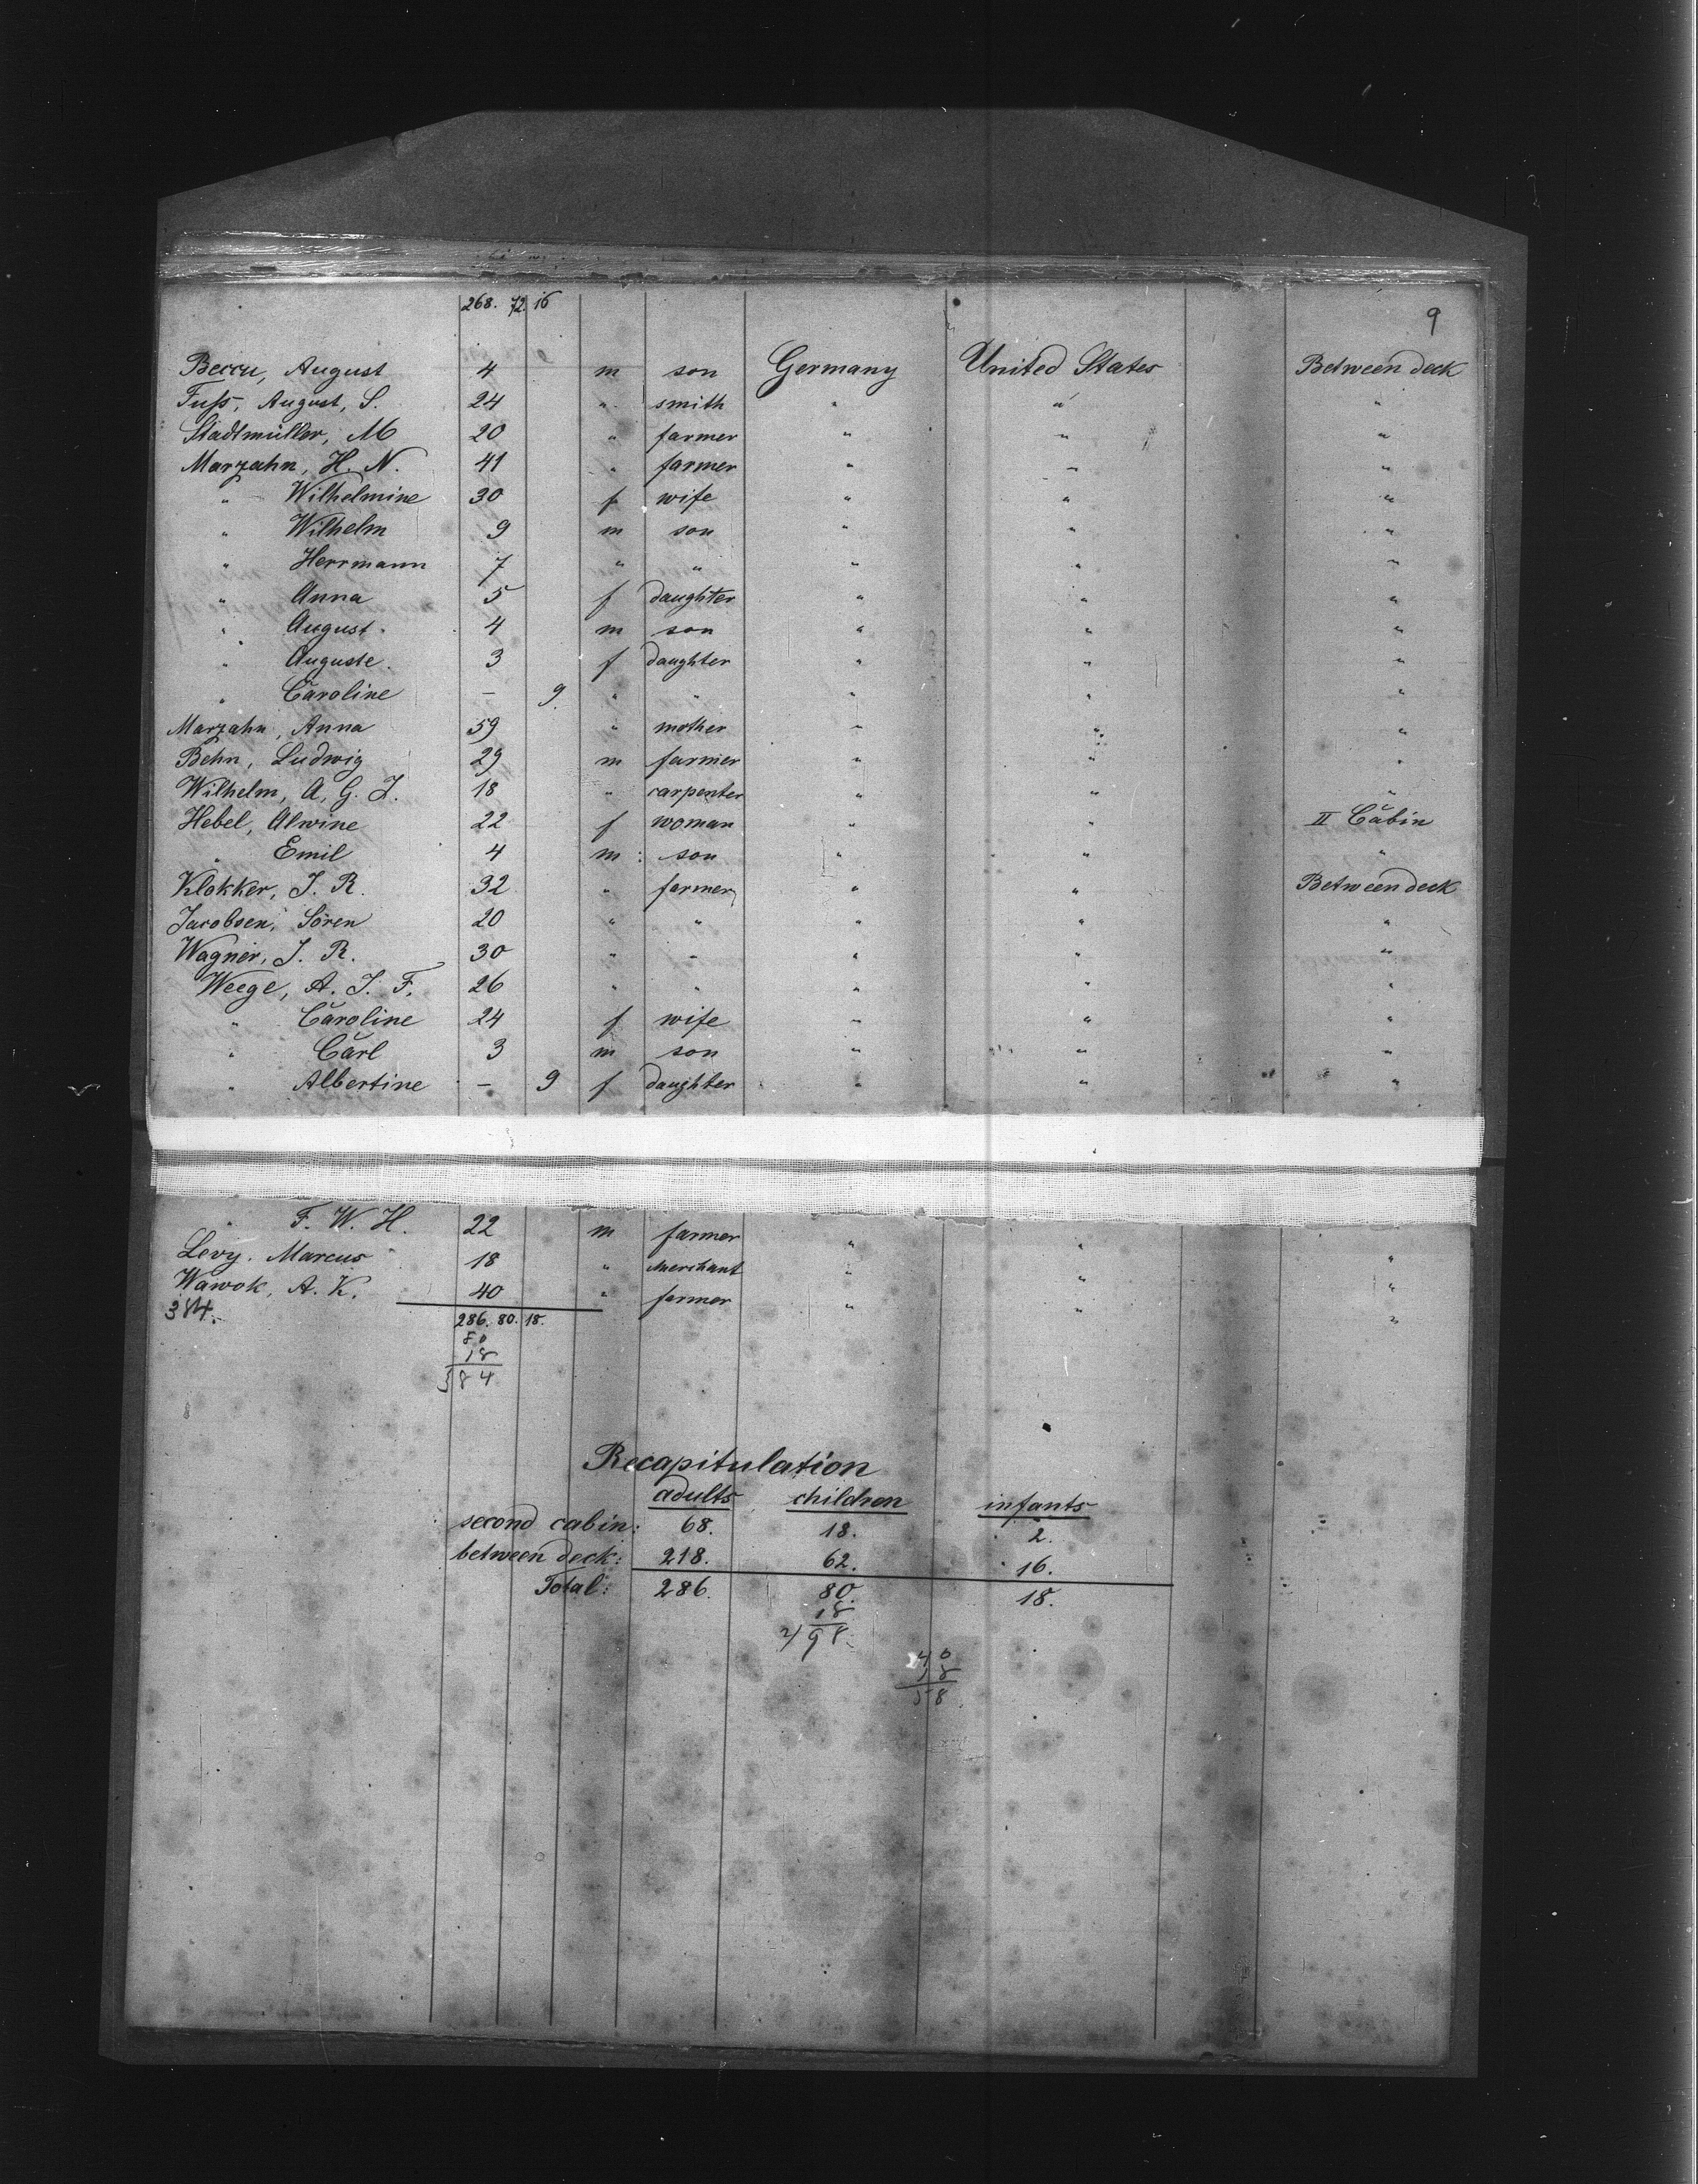 268. 72. 16
9
Beccu, August 4 m son Germany United States Between deck
Fuſs, August, S. 24 " smith " " "
Stadtmüller, M 20 " farmer " " "
Marzahn, H. N. 41 " farmer " " "
" Wilhelmine 30 f wife " " "
" Wilhelm 9 m son " " "
" Herrmann 7 " " " " "
" Anna 5 f daughter " " "
" August. 4 m son " " "
" Auguste. 3 f daughter " " "
" Caroline – 9. " " " " "
Marzahn, Anna 59 " mother " " "
Behn, Ludwig 29 m farmer " " "
Wilhelm, A, G. J. 18 " carpenter " " "
Hebel, Alwine 22 f woman " " II Cabin
" Emil 4 m : son " " "
Klokker, J. R. 32 " farmer " " Between deck
Jacobsen, Sören 20 " " " " "
Wagner, J. R. 30 " " " " "
Weege, A. J. F. 26 " " " " "
" Caroline 24 f wife " " "
" Carl 3 m son " " "
" Albertine – 9 f daughter " " "
" F. W. H. 22 m farmer " " "
Levy. Marcus 18 " Merchant " " "
Wawok, A. K. 40 " farmer " " "
384.
286. 80. 18.
80
18
384
Recapitulation
adults children infants
second cabin: 68. 18. 2.
between deck: 218. 62. 16.
Total: 286. 80. 18.
18
2/98
40
18
58